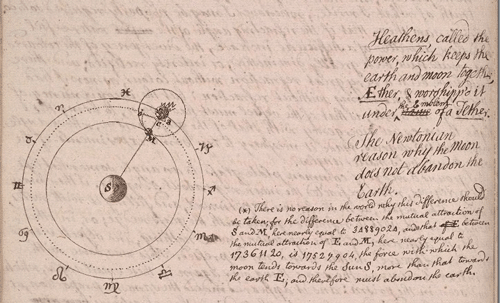 Heathens, called the
power, which keeps the
earth and moon together,
Æther, & worshipp'd it
under the Emblem of a Tether.
The Newtonian
reason why the Moon
does not abandon the
Earth.
(x) There is no reason in the world why this difference should
be taken; for the difference between the mutual attraction of
S and M, here nearly equal to 34889024, and that of between
the mutual attraction of E and M, here nearly equal to
17361120, is 17527904, the force with which the
moon tends towards the Sun S, more than that towards
the earth E; and therefore must abandon the earth.
♓
♈
♉
♊
♋
♌
♍
♎
♏
♐
♑
S
M